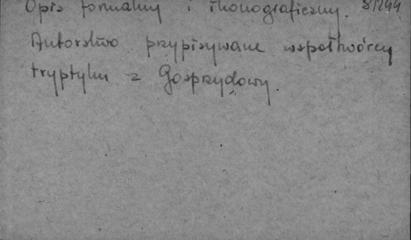 Opis formalny i ikonograficzny.
Autorstwo przypisywane współtwórcy
tryptyku z Gosprzydowy.